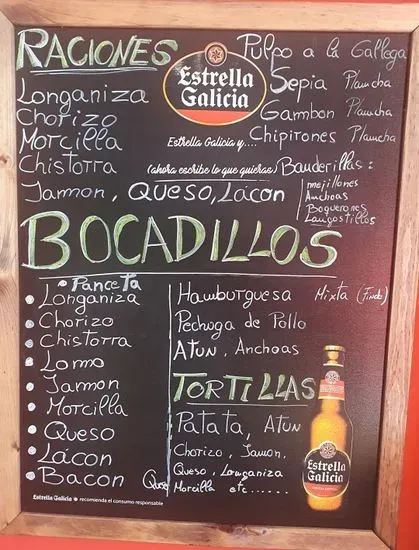 RACIONES
Longaniza
Chorizo
Morcilla
Chistorra
Jamon, QUESO, Lacon
Estrella
Galicia
Estrella Galicia y....
(ahora escribe lo que quieras)
Pulpo a la Gallega
Sepia Plancha
Gambon Plancha
Chipirones Plancha
Banderillas:
mejillones
Anchoas
Boquerones
Langostillos
BOCADILLOS
• Panceta
• Longaniza
• Chorizo
• Chistorra
• Lomo
• Jamon
• Morcilla
• Queso
• Lacon
• Bacon Queso
Hamburguesa Mixta (Finde)
Pechuga de Pollo
ATUN, Anchoas
TORTILLAS
Patata, ATUN
Chorizo, Jamon,
Queso, Longaniza
Morcilla etc......
Estrella
Galicia
Estrella Galicia recomienda el consumo responsable